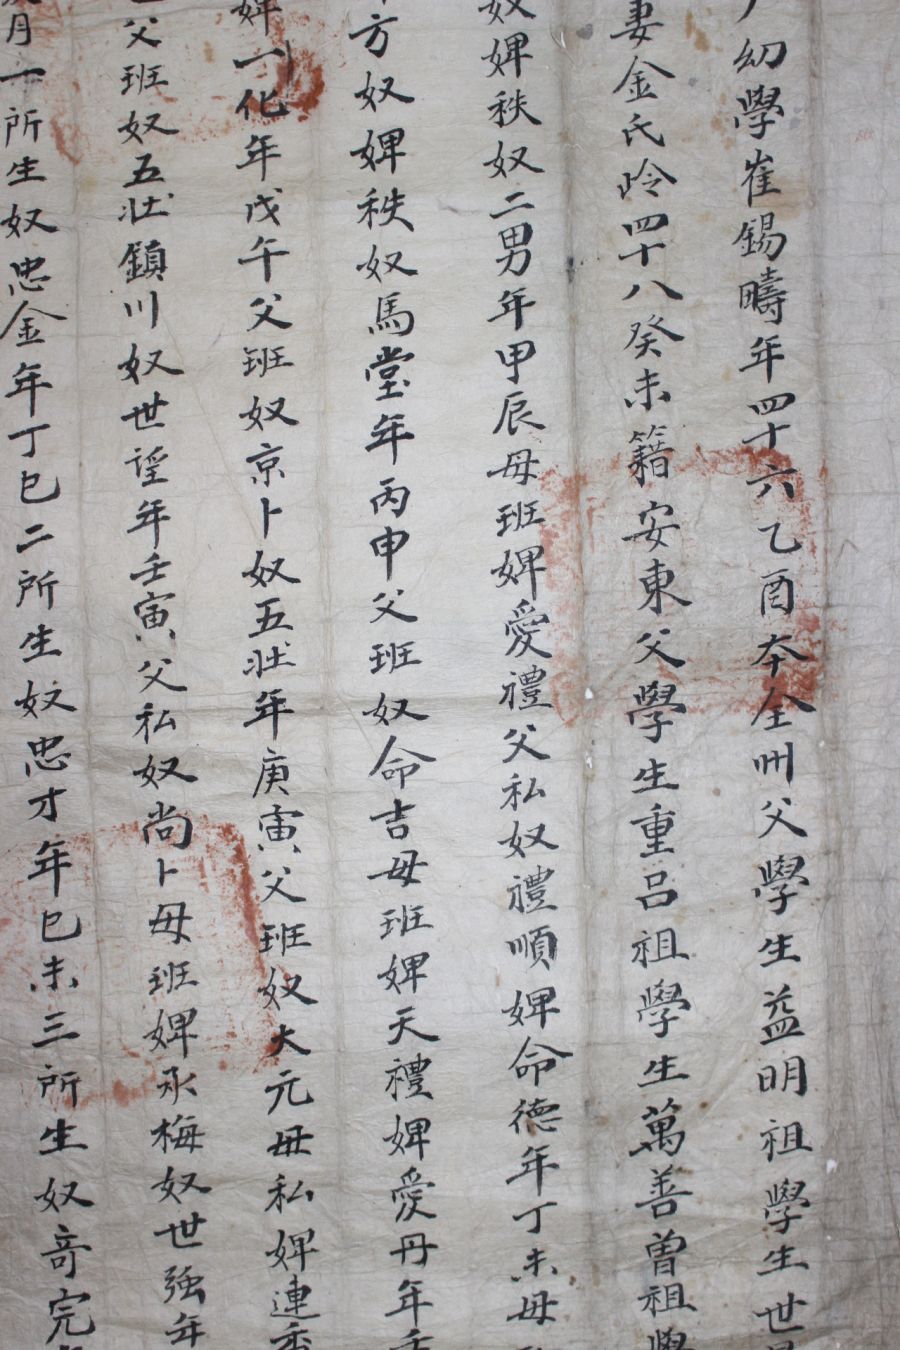 幼學崔錫疇年四十六乙酉本全州父學生益明祖學生世
妻金氏岭四十八癸未籍安東父學生重呂祖學生萬善曽祖學
奴婢秩奴二男年甲辰母班婢愛禮父私奴禮順婢命德年丁未母
方奴婢秩奴馬堂年丙申父班奴命吉母班婢天禮婢愛丹年壬
婢一化年戊午父班奴京卜奴五壯年庚寅父班奴大元母私婢連香
父班奴五壯鎮川奴世谣年壬寅父私奴尚卜母班婢永梅奴世強年
月一所生奴忠金年丁巳二所生奴忠才年巳未三所生奴奇完